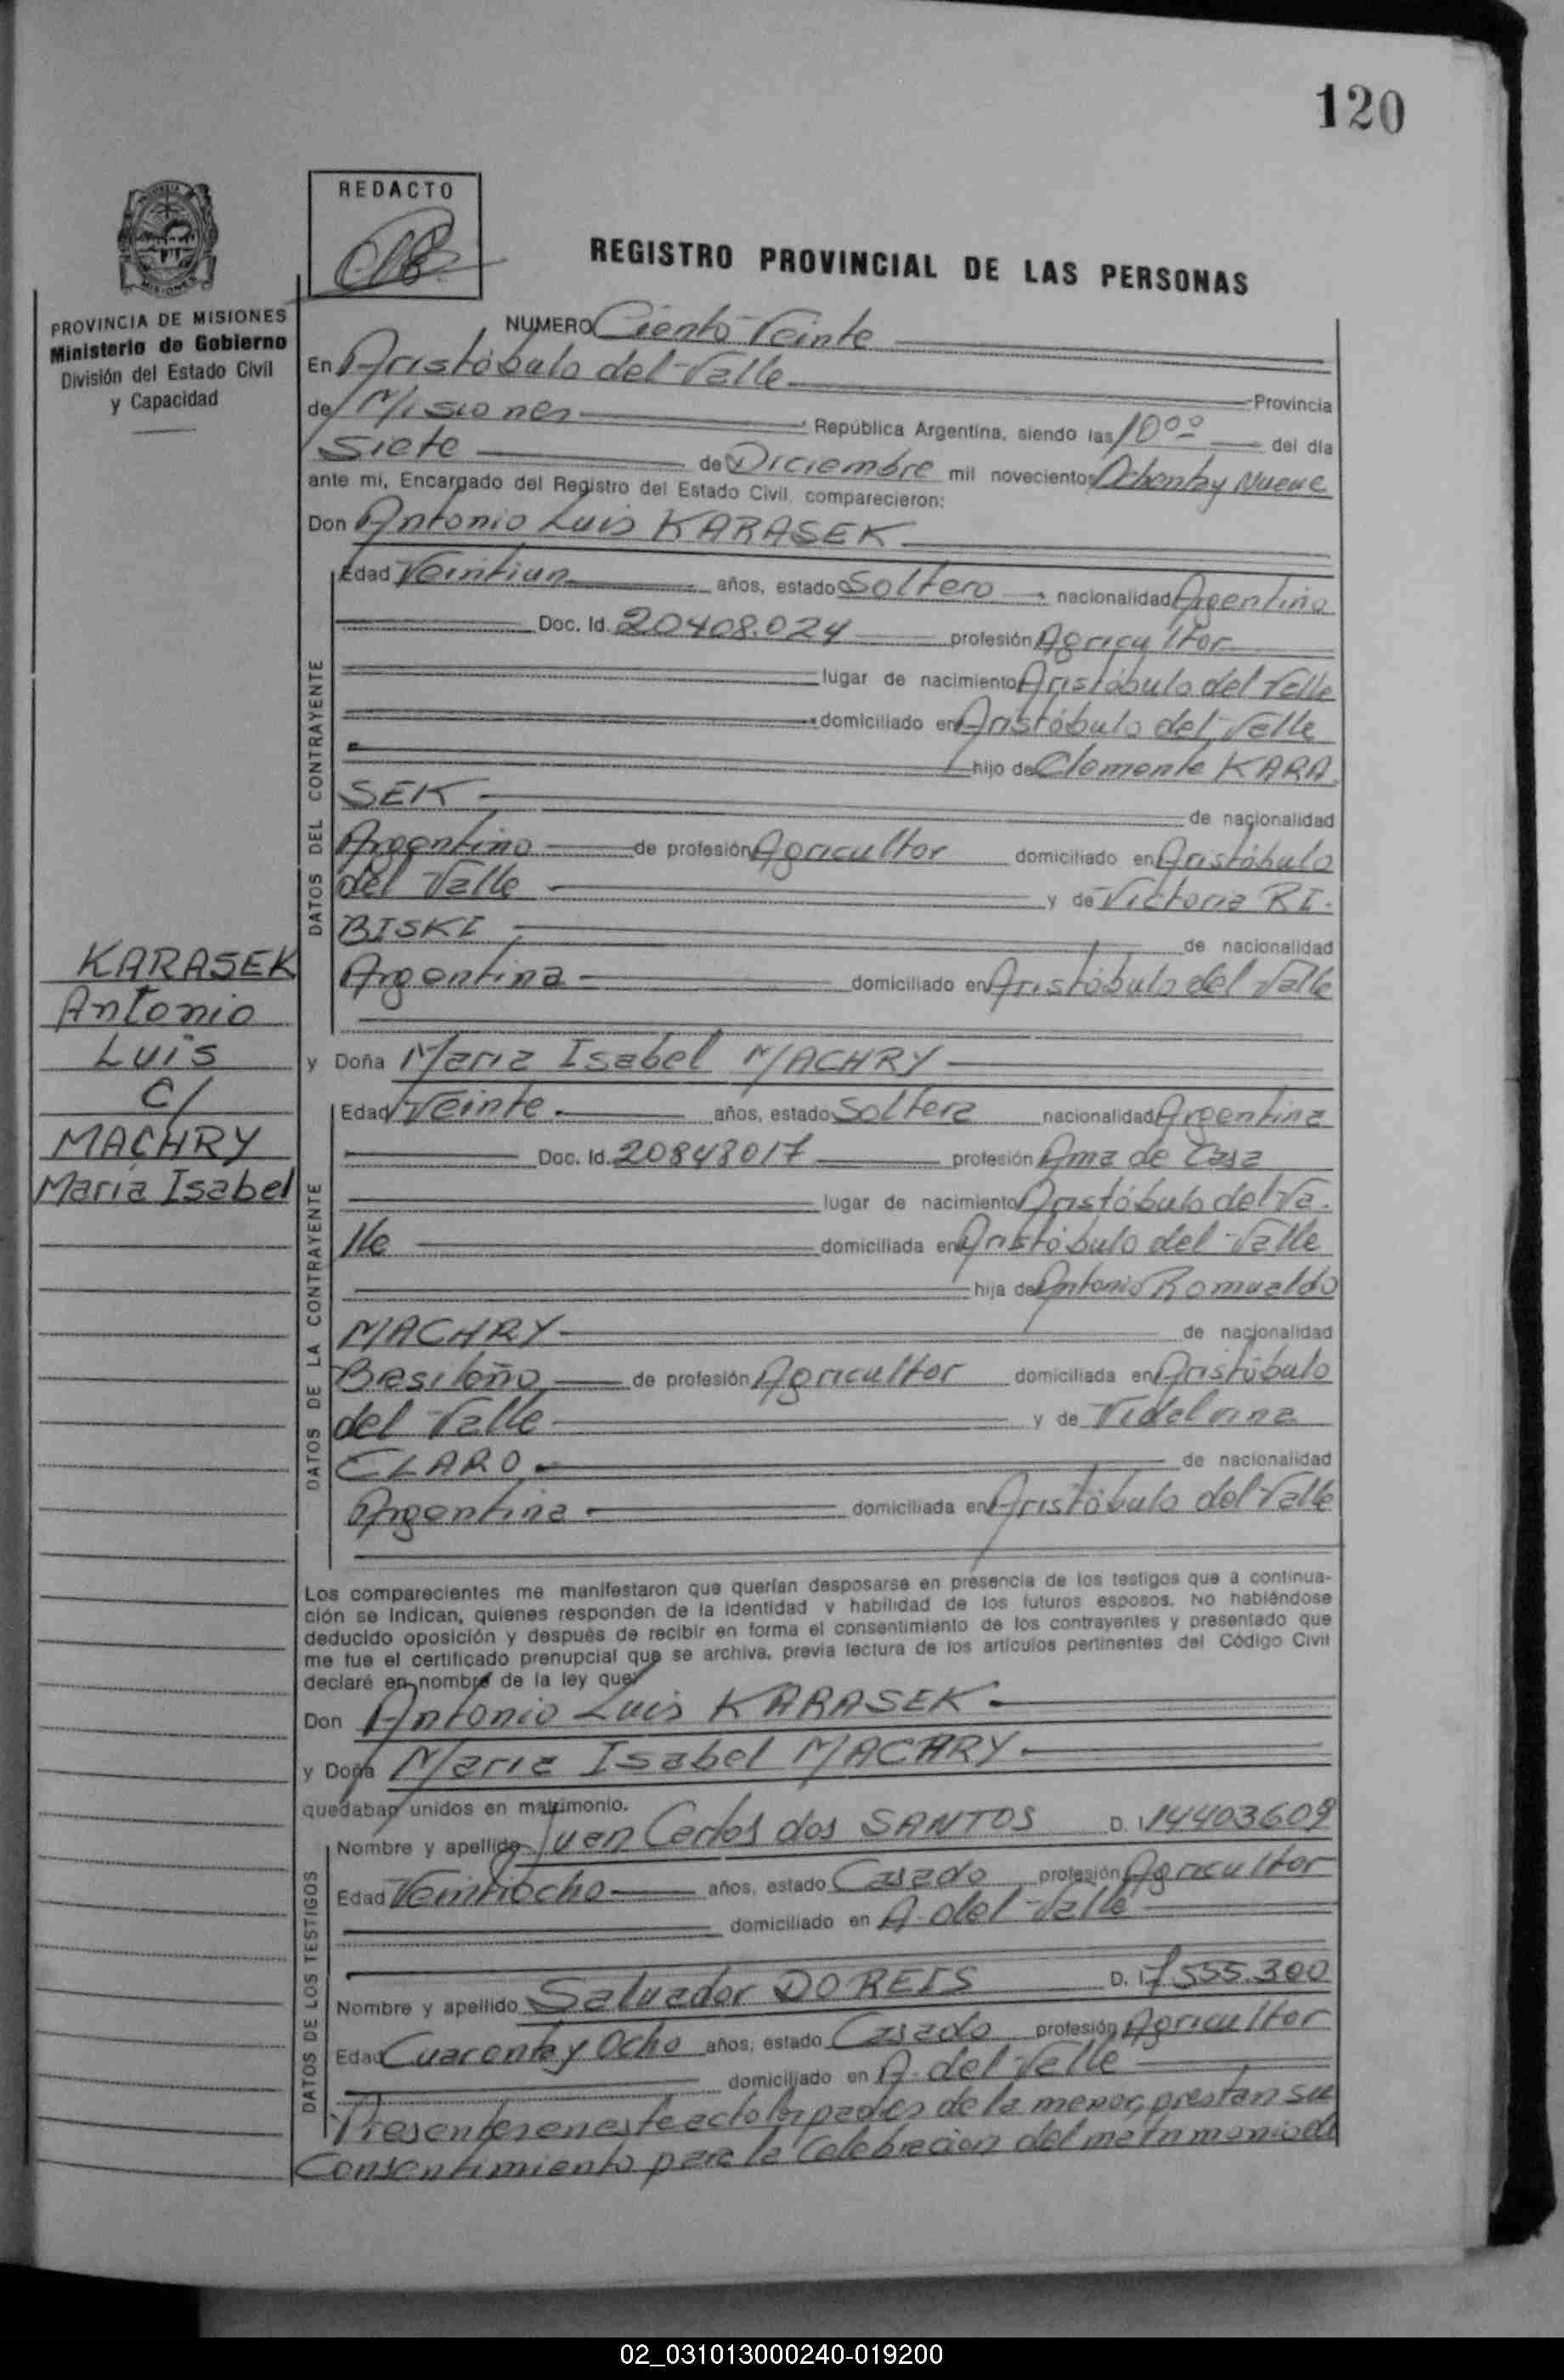 120
REDACTO
REGISTRO PROVINCIAL DE LAS PERSONAS
PROVINCIA DE MISIONES
Ministerio de Gobierno
División del Estado Civil
y Capacidad
NUMERO Ciento Veinte
En Aristóbulo del Valle Provincia
de Misiones República Argentina, siendo las 10ºº del día
Siete de Diciembre mil novecientos Ochenta y Nueve
ante mi, Encargado del Registro del Estado Civil, comparecieron:
Don Antonio Luis KARASEK
Edad Veintiun años, estado Soltero nacionalidad Argentino
Doc. Id. 20408.024 profesión Agricultor
lugar de nacimiento Aristóbulo del Valle
domiciliado en Aristóbulo del Valle
hijo de Clemente KARA
SEK de nacionalidad
Argentino de profesión Agricultor domiciliado en Aristóbulo
del Valle y de Victoria RI.
BISKI de nacionalidad
Argentina domiciliado en Aristóbulo del Valle
DATOS DEL CONTRAYENTE
KARASEK
Antonio
Luis
C/
MACHRY
María Isabel
y Doña Maria Isabel MACHRY
Edad Veinte años, estado Soltera nacionalidad Argentina
Doc. Id. 20848017 profesión Ama de Casa
lugar de nacimiento Aristóbulo del Va.
lle domiciliada en Aristóbulo del Valle
hija de Antonio Romualdo
MACHRY de nacionalidad
Brasileño de profesión Agricultor domiciliada en Aristóbulo
del Valle y de Videlvina
CLARO de nacionalidad
Argentina domiciliada en Aristóbulo del Valle
DATOS DE LA CONTRAYENTE
Los comparecientes me manifestaron que querían desposarse en presencia de los testigos que a continua-
ción se indican, quienes responden de la identidad y habilidad de los futuros esposos. No habiéndose
deducido oposición y después de recibir en forma el consentimiento de los contrayentes y presentado que
me fue el certificado prenupcial que se archiva, previa lectura de los artículos pertinentes del Código Civil
declaré en nombre de la ley que:
Don Antonio Luis KARASEK
y Doña Maria Isabel MACHRY
quedaban unidos en matrimonio.
Nombre y apellido Juan Carlos dos SANTOS D. I. 14403609
Edad Veintiocho años, estado Casado profesión Agricultor
domiciliado en A. del Valle
Nombre y apellido Salvador DO REIS D. I. 7555.300
Edad Cuarenta y Ocho años, estado Casado profesión Agricultor
domiciliado en A. del Valle
DATOS DE LOS TESTIGOS
Presentes en este acto los padres de la menor, prestan su
Consentimiento para la Celebracion del matrimonio de
02_031013000240-019200